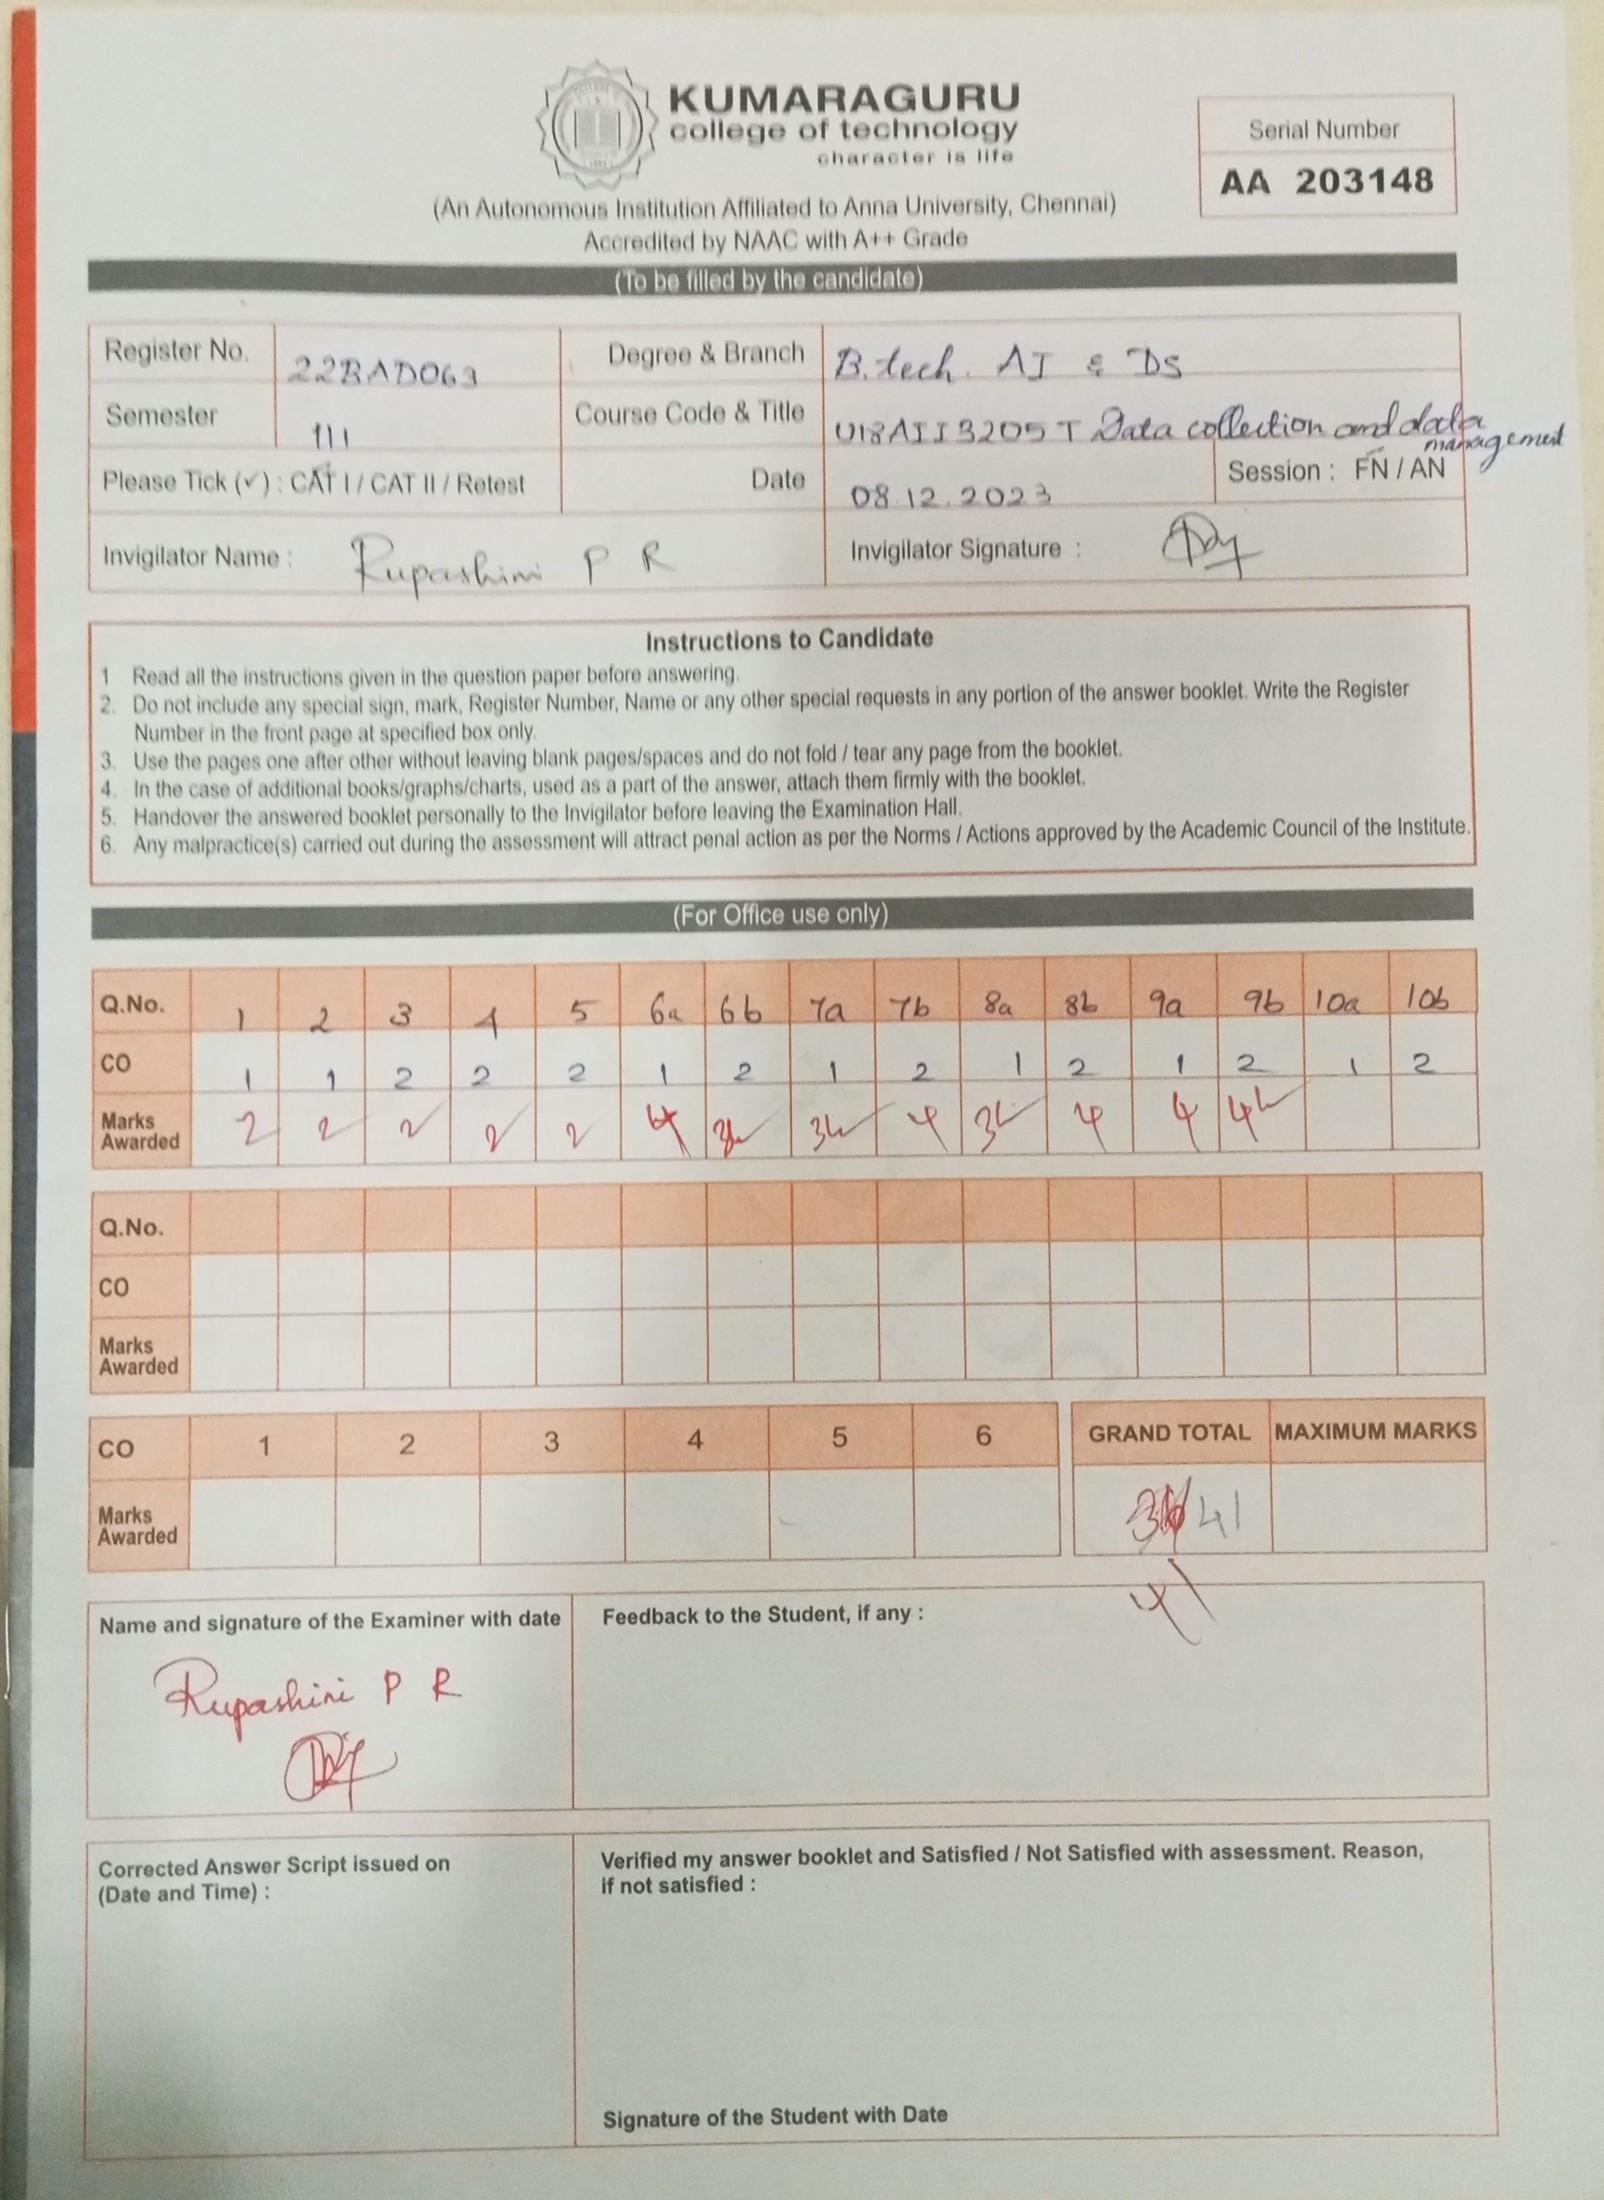 KUMARAGURU
college of technology
character is life
Serial Number
AA 203148
(An Autonomous Institution Affiliated to Anna University, Chennai)
Accredited by NAAC with A++ Grade
(To be filled by the candidate)
Register No. 22BAD063 Degree & Branch B.tech. AI & DS
Semester III Course Code & Title U18AII3205T Data collection and data management
Please Tick (✓) : CAT I / CAT II / Retest Date 08.12.2023 Session : FN / AN
Invigilator Name : Rupashini P R Invigilator Signature :
Instructions to Candidate
1 Read all the instructions given in the question paper before answering.
2. Do not include any special sign, mark, Register Number, Name or any other special requests in any portion of the answer booklet. Write the Register
Number in the front page at specified box only.
3. Use the pages one after other without leaving blank pages/spaces and do not fold / tear any page from the booklet.
4. In the case of additional books/graphs/charts, used as a part of the answer, attach them firmly with the booklet.
5. Handover the answered booklet personally to the Invigilator before leaving the Examination Hall.
6. Any malpractice(s) carried out during the assessment will attract penal action as per the Norms / Actions approved by the Academic Council of the Institute.
(For Office use only)
Q.No. 1 2 3 4 5 6a 6b 7a 7b 8a 8b 9a 9b 10a 10b
CO 1 1 2 2 2 1 2 1 2 1 2 1 2 1 2
Marks Awarded 2 2 2 2 2 4 3½ 3½ 4 3½ 4 4 4½
Q.No.
CO
Marks Awarded
CO 1 2 3 4 5 6 GRAND TOTAL MAXIMUM MARKS
Marks Awarded 41
41
Name and signature of the Examiner with date
Rupashini P R
Feedback to the Student, if any :
Corrected Answer Script issued on
(Date and Time) :
Verified my answer booklet and Satisfied / Not Satisfied with assessment. Reason,
if not satisfied :
Signature of the Student with Date